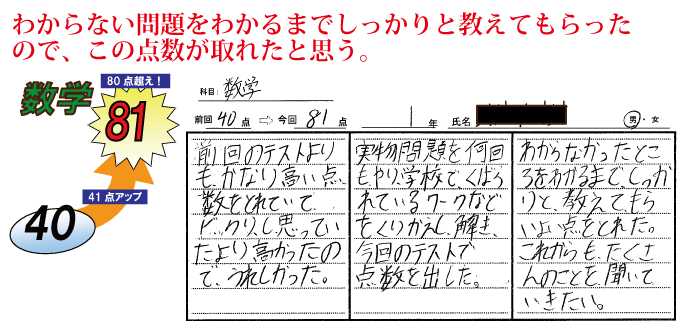 わからない問題をわかるまでしっかりと教えてもらった
ので、この点数が取れたと思う。
数学
80点超え！
81
41点アップ
40
科目: 数学
前回 40 点 ⇨ 今回 81 点 1 年 氏名 男・女
前回のテストより
もかなり高い点
数をとれていて、
ビックリし思ってい
たより高かったの
で、うれしかった。
実物問題を何回
もやり、学校でくばら
れているワークなど
をくりかえし、解き、
今回のテストで
点数を出した。
わからなかったとこ
ろをわかるまで、しっか
りと、教えてもら
いよい点をとれた。
これからも、たくさ
んのことを聞いて
いきたい。